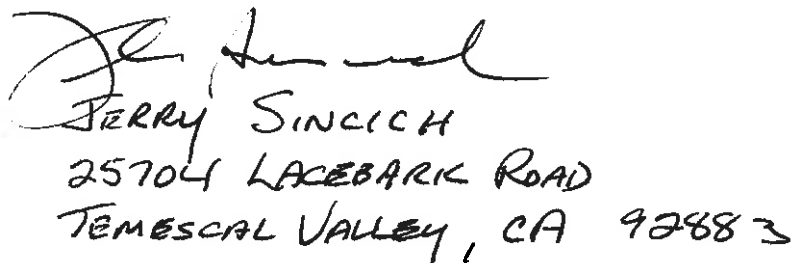 JERRY SINCICH
25704 LACEBARK ROAD
TEMESCAL VALLEY, CA 92883